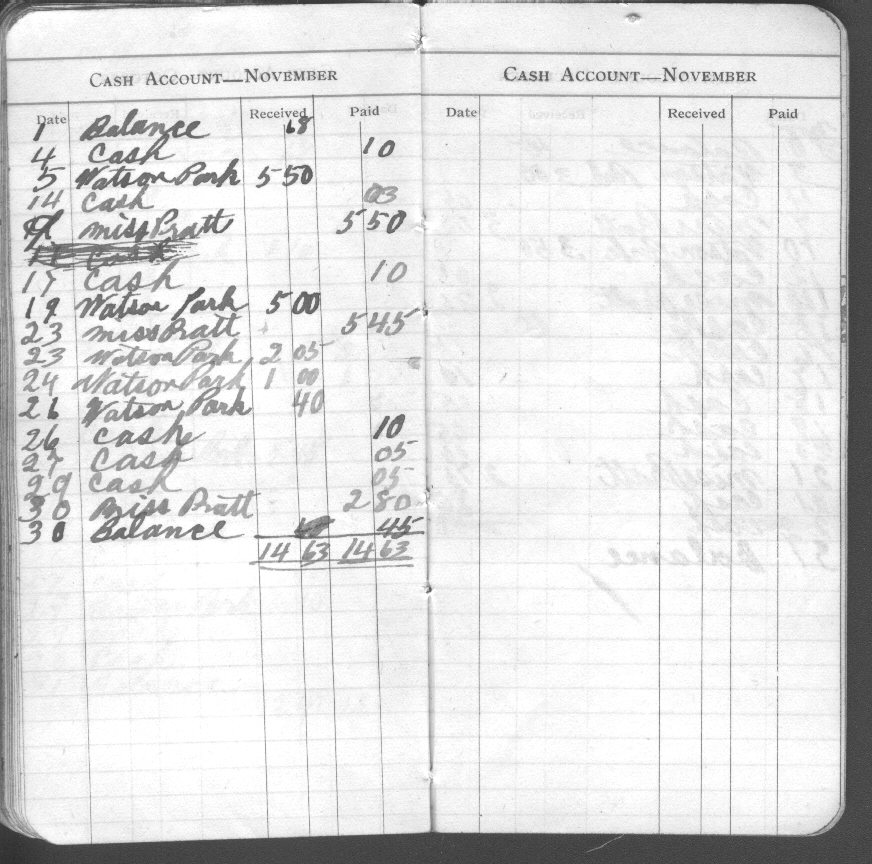 CASH ACCOUNT—NOVEMBER
Date Received Paid
1 Balance 68
4 Cash 10
5 Watson Park 5 50
14 Cash 03
Miss Pratt 5 50
17 Cash
17 Cash 10
19 Watson Park 5 00
23 Miss Pratt 5 45
23 Watson Park 2 05
24 Watson Park 1 00
26 Watson Park 40
26 Cash 10
27 Cash 05
29 Cash 05
30 Miss Pratt 2 80
30 Balance 45
14 63 14 63
CASH ACCOUNT—NOVEMBER
Date Received Paid